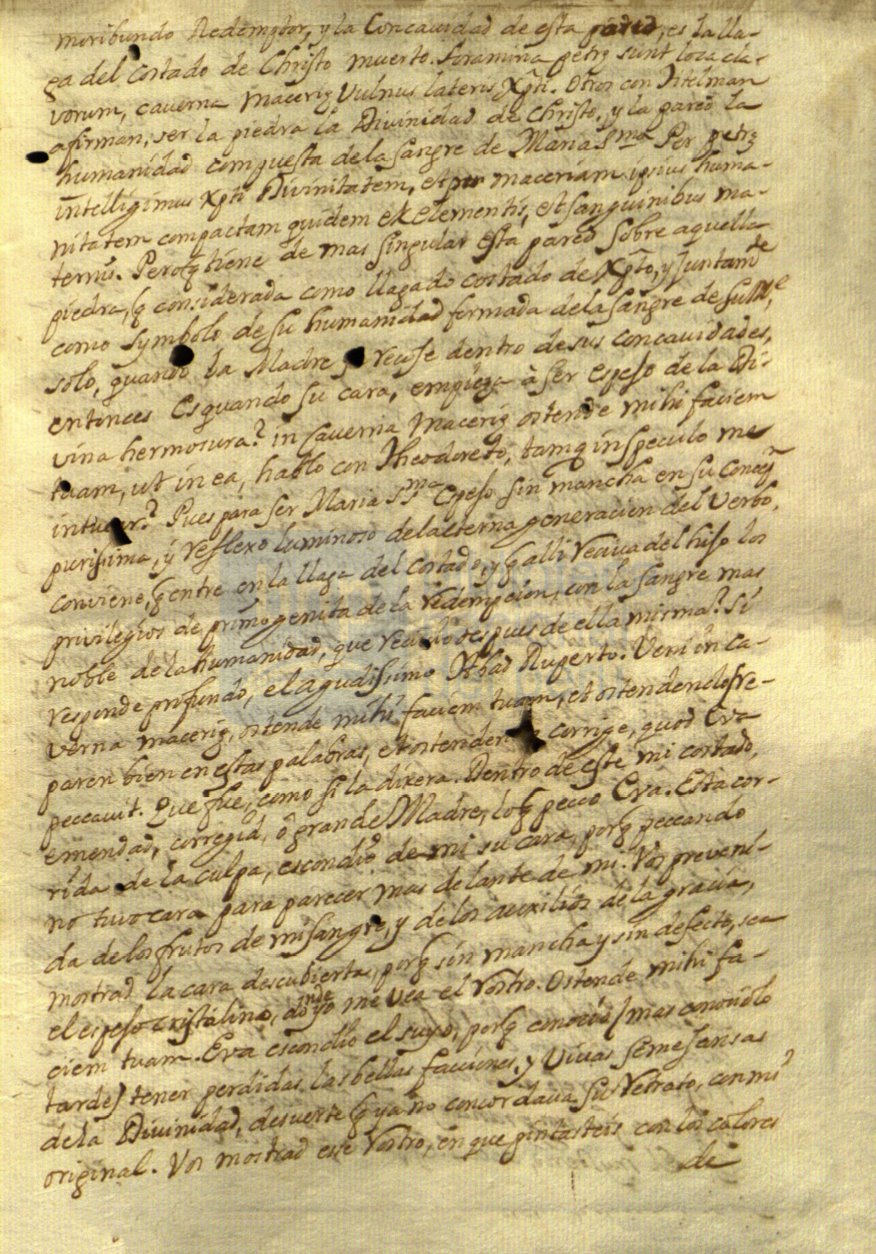 moribundo Redemptor, y la Concauidad de esta pared, es la lla-
ga del Costado de Christo muerto. Foramina petrę sunt loca cla-
vorum, caverna macerię vulnus lateris Xpti. Otros con
afirman, ser la piedra la Divinidad de Christo, y la pared la
humanidad compuesta de la sangre de Maria Sma. Per petrę
intelligimus Xpti Divinitatem, et per maceriam ipsius huma-
nitatem compactam quidem ex elementis, et sanguinibus ma-
ternis. Pero q tiene de mas singular esta pared sobre aquella
piedra, q considerada como llaga do costado de Xpto, y juntamte
como symbolo de su humanidad formada de la sangre de su Me,
solo, quando la Madre se recoje dentro de sus concauidades,
entonces es quando su cara, empieza à ser espejo de la Di-
vina hermosura? in caverna macerię ostende mihi faciem
tuam, ut in ea, hablo con Theodoreto, tamq in speculo me
intuear? Pues para ser Maria Sma Espejo sin mancha en su Concepn
purissima, y reflexo luminoso de la eterna generacion del Verbo,
conviene, q entre en la llaga del costado, y q alli reciva del hijo los
privilegios de primogenita de la redempcion, con la sangre mas
noble de la humanidad, que recivió despues de ella misma? Si
responde profundo, el agudissimo Abad Ruperto. Veni in ca-
verna macerię, ostende mihi faciem tuam, et ostendendo (re-
paren bien en estas palabras, et ostendendo corrige, quod Eva
peccavit. Que fue, como si la dixera. Dentro de este mi costado,
emendad, corregid, ô grande Madre, lo q peccò Eva. Esta cor-
rida de la culpa, escondiò de mi su cara, porq peccando
no tuvo cara para parecer mas delante de mi. Vos preveni-
da de los frutos de mi sangre, y de los auxilios de la gracia,
mostrad la cara descubierta, porq sin mancha y sin defecto, sea
el espejo cristalino, adonde yo me vea el rostro. Ostende mihi fa-
ciem tuam. Eva escondiò el suyo, porq conociò (mas conociòlo
tarde) tener perdidas las bellas facciones, y vivas semejansas
de la Divinidad, de suerte q ya no concordava su retrato, con mi
original. Vos mostrad esse rostro, en que pintasteis con los colores
de